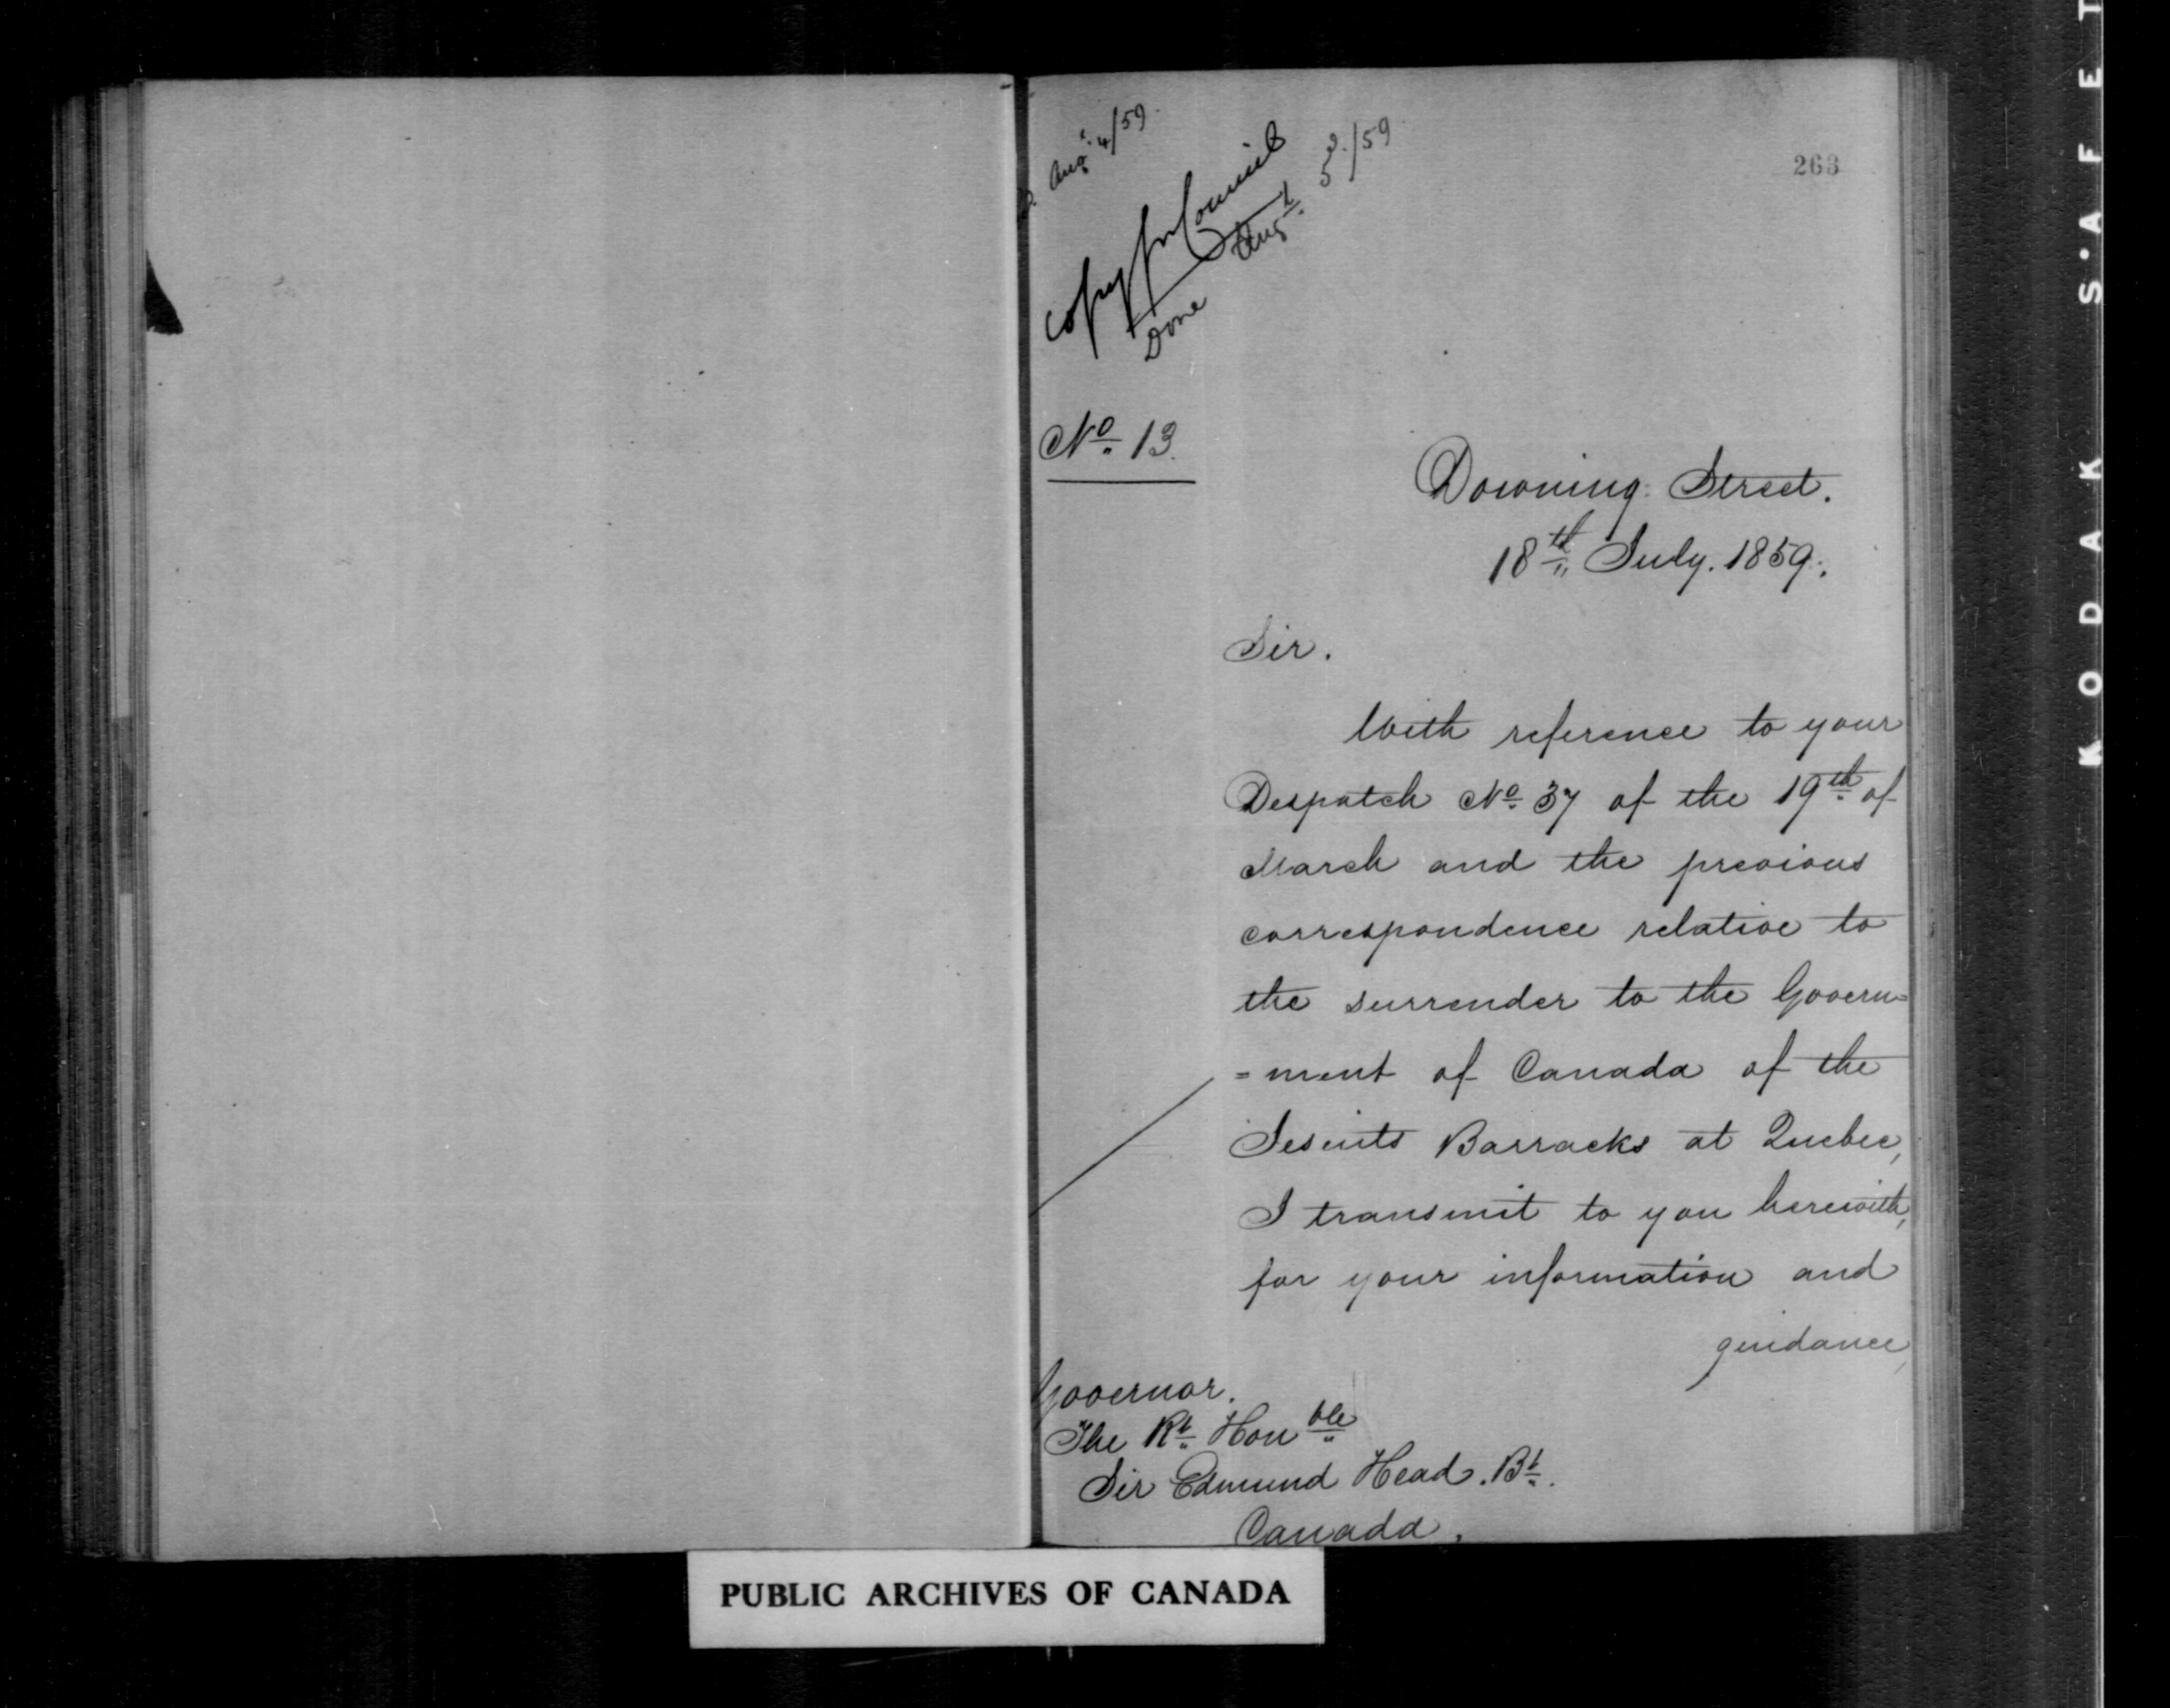 Augt. 4/59
263
copy for Council
Done Augt. 5/59
No. 13.
Downing Street.
18th July. 1859.
Sir.
With reference to your
Despatch No. 37 of the 19th of
March and the previous
correspondence relative to
the surrender to the Govern=
=ment of Canada of the
Jesuits Barracks at Quebec,
I transmit to you herewith,
for your information and
guidance,
Governor.
The Rt. Honble
Sir Edmund Head. Bt.
Canada.
PUBLIC ARCHIVES OF CANADA
KODAK S'AFET